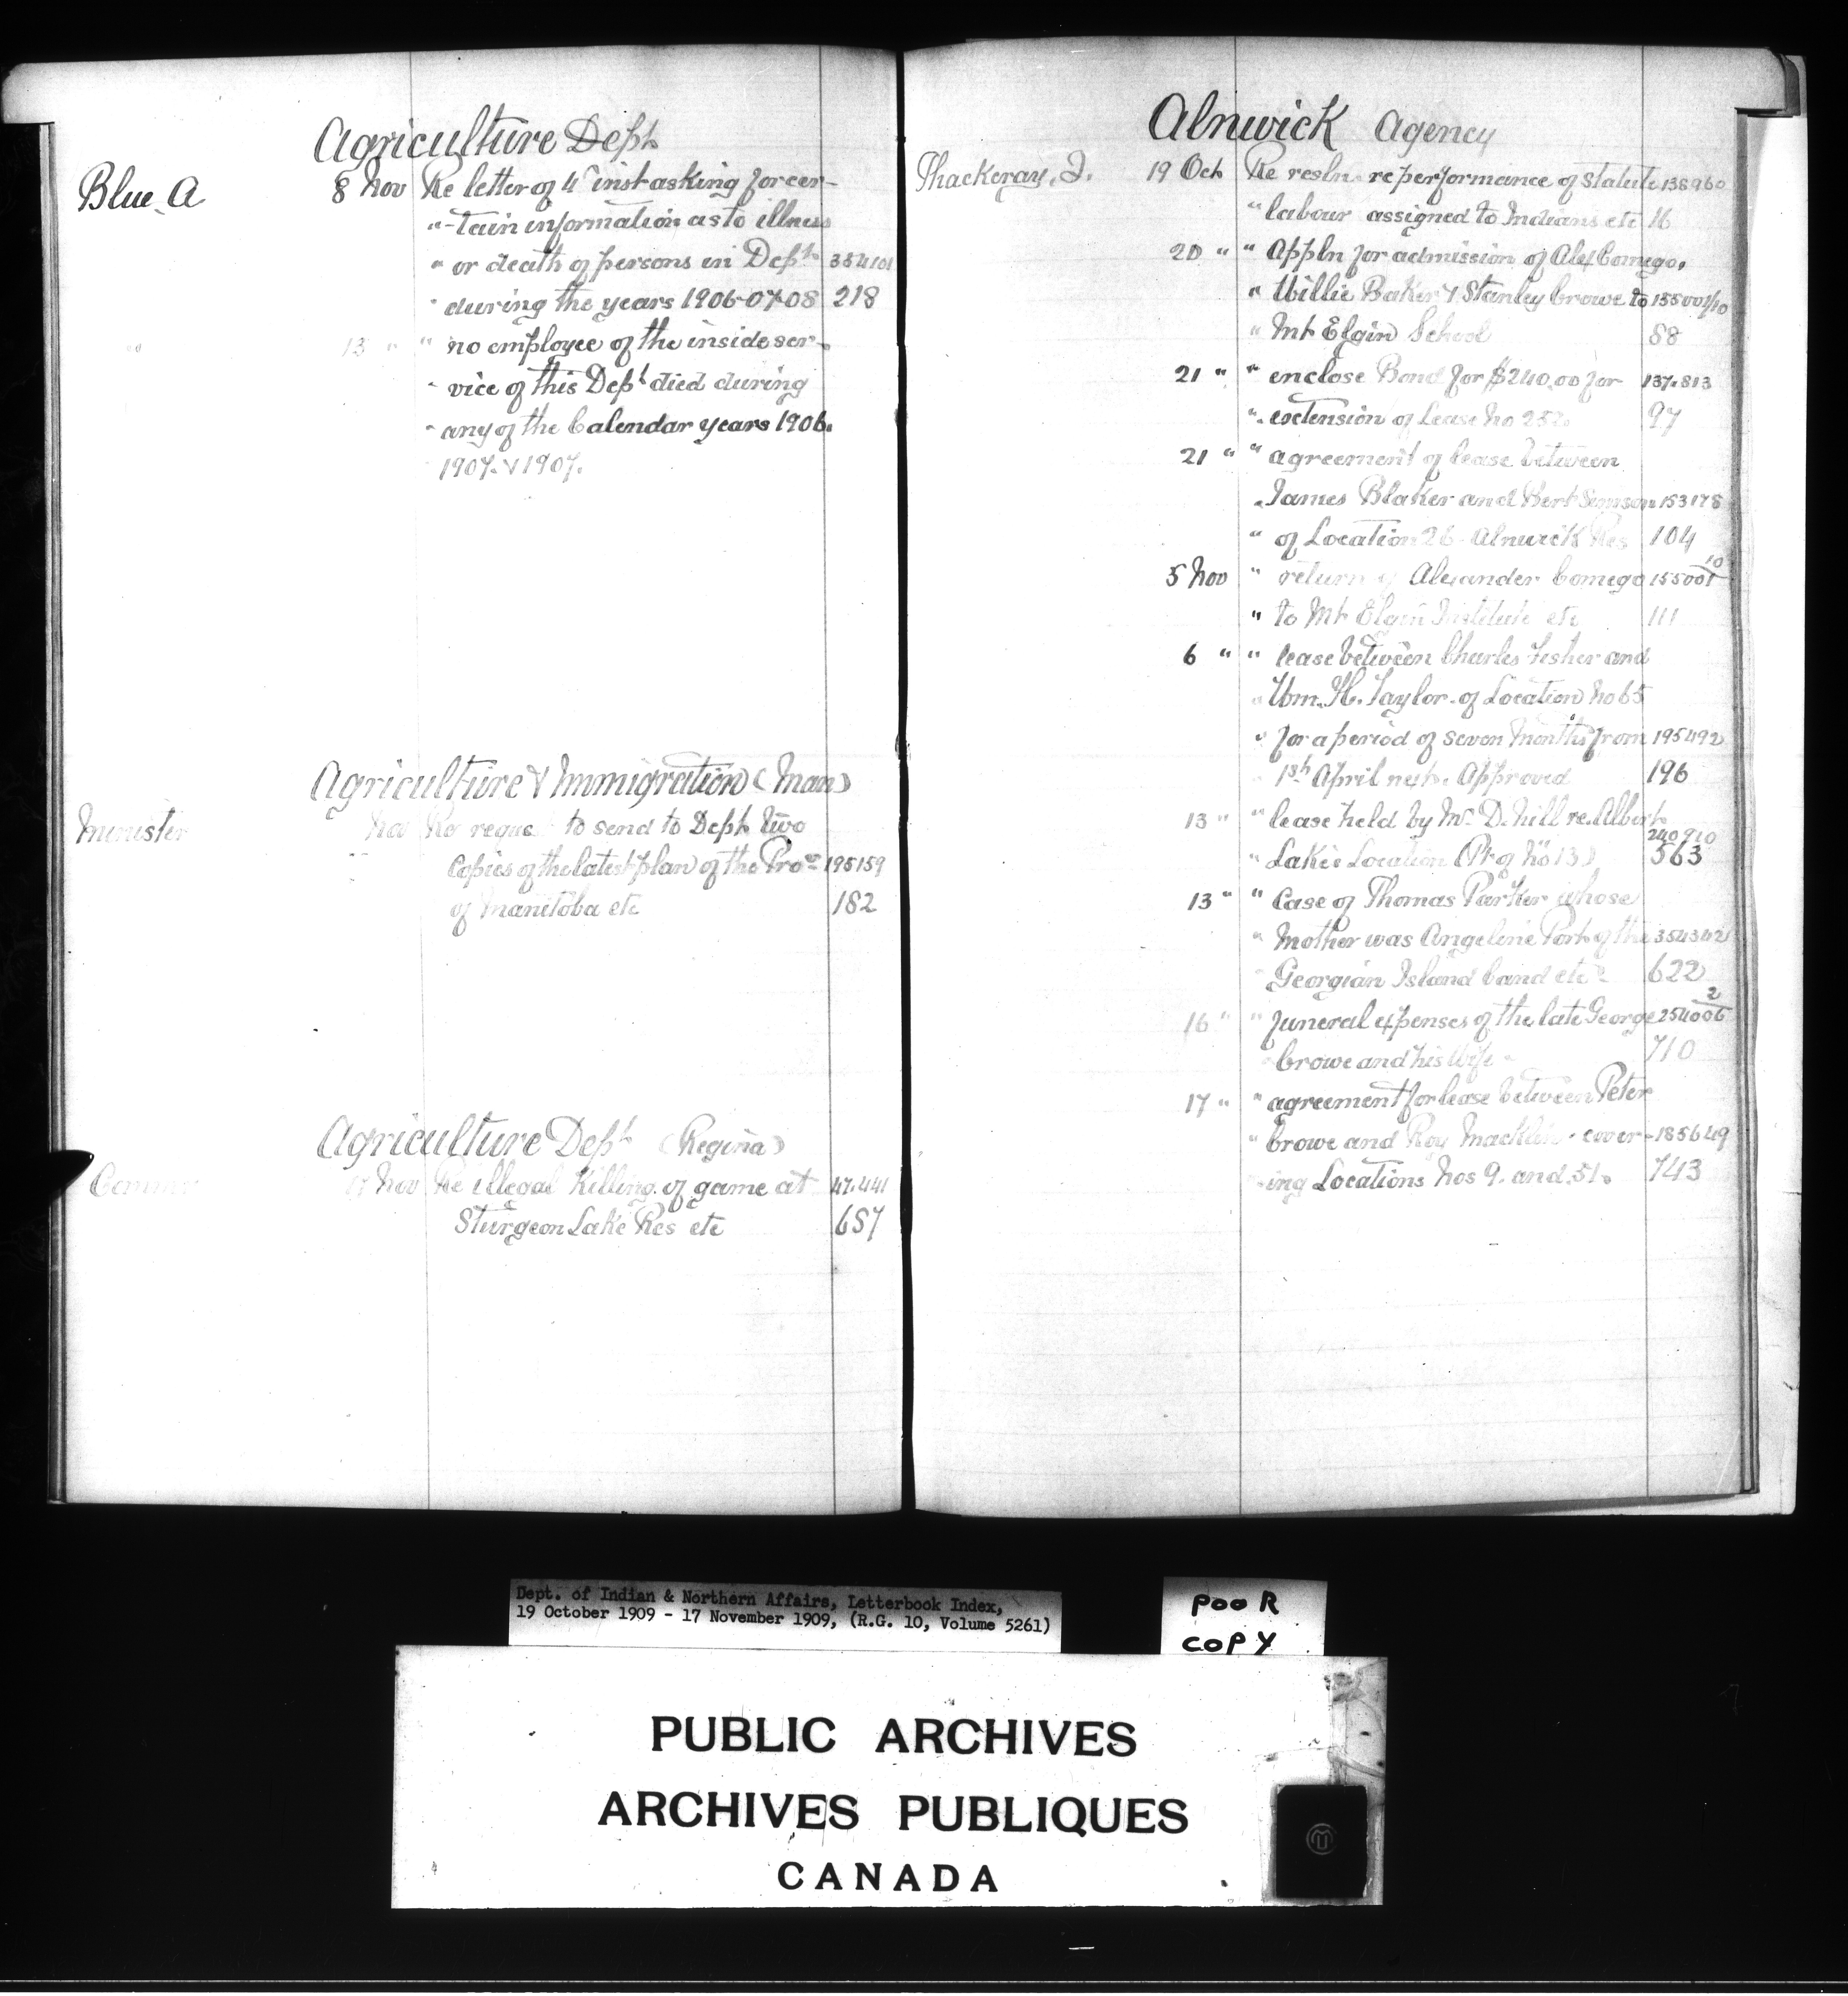 Agriculture Dept.
Blue. A 8 Nov Re letter of 4" inst asking for cer-
"-tain information as to illness
" or death of persons in Dept. 354101
" during the years 1906-07-08 218
13 " " no employee of the inside ser-
" vice of this Dept died during
" any of the Calendar years 1906.
1907. & 1907.
Agriculture & Immigration (Man)
Minister Nov Re reque to send to Dept. two
Copies of the latest plan of the Proce 195159
of Manitoba etc 182
Agriculture Dept. (Regina)
17 Nov Re illegal Killing of game at 47.441
Sturgeon Lake Res etc 657
Alnwick Agency
Thackeray, J. 19 Oct Re resln. re performance of Statute 138960
" labour assigned to Indians etc 16
20 " " Appln for admission of Alex Comego,
" Willie Baker & Stanley Crowe to 155001/10
" Mt Elgin School 88
21 " " enclose Bond for $240.00 for 137.813
" extension of Lease No 252. 97
21 " " agreement of lease between
" James Blaker and Bert Simpson 153178
" of Location 26 Alnwick Res 104
5 Nov " return of Alexander Comego 155001/10
" to Mt Elgin Institute etc 111
6 " " lease between Charles Fisher and
" Wm. H. Taylor. of Location No 65
" for a period of seven months from 195492
1st April next. Approved 196
13 " " lease held by Mr. D. Hill re. Albert
" Lake's Location (Pt of No 13) 240910
563
13 " " Case of Thomas Parker whose
" Mother was Angeline Port of the 354342
Georgian Island band etc 622
16 " " funeral expenses of the late George 254006/2
" Crowe and his Wife 710
17 " " agreement for lease between Peter
" Crowe and Roy Macklin - cover- 185649
-ing Locations Nos 9. and 51. 743
Dept. of Indian & Northern Affairs, Letterbook Index,
19 October 1909 - 17 November 1909, (R.G. 10, Volume 5261)
POOR
COPY
PUBLIC ARCHIVES
ARCHIVES PUBLIQUES
CANADA